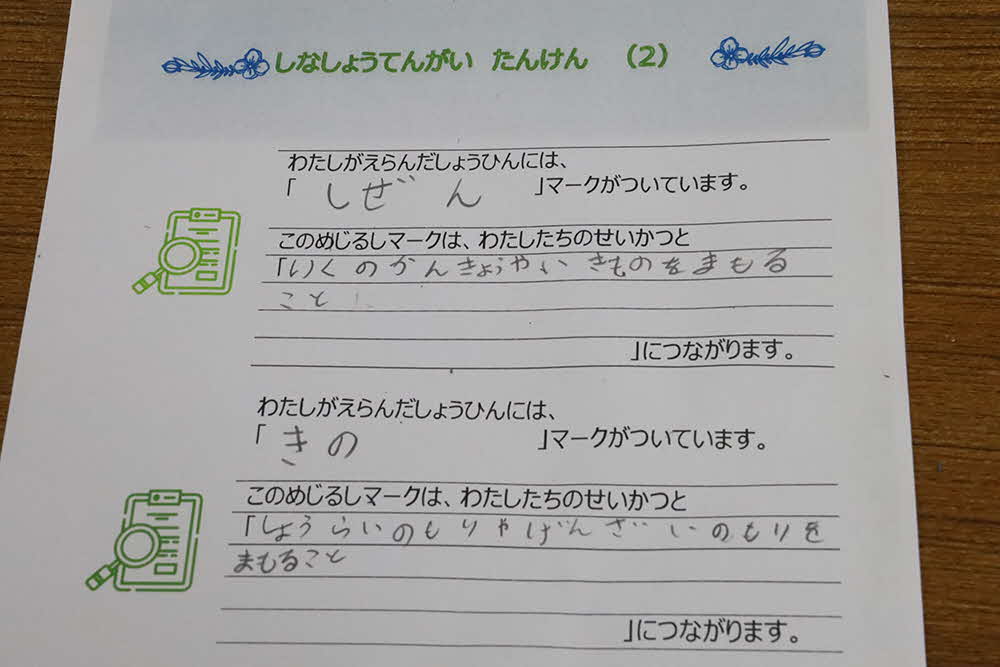 しなしょうてんがい たんけん (2)
わたしがえらんだしょうひんには、
「 しぜん 」マークがついています。
このめじるしマークは、わたしたちのせいかつと
「りくのかんきょうやいきものをまもる
こと
」につながります。
わたしがえらんだしょうひんには、
「 きの 」マークがついています。
このめじるしマークは、わたしたちのせいかつと
「しょうらいのもりやげんざいのもりを
まもること
」につながります。